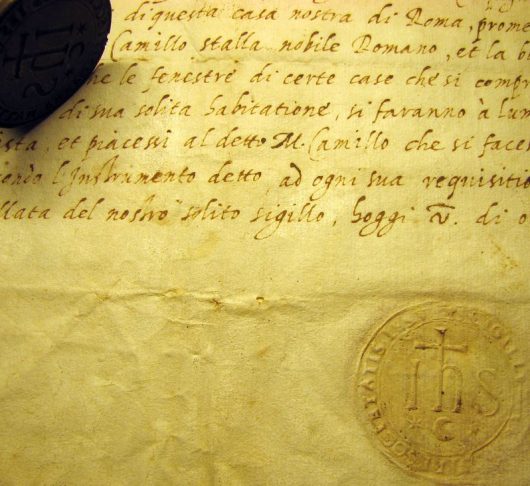 di questa casa nostra di Roma, prome
Camillo stalla nobile Romano, et la
le fenestre di certe case che si compr
di sua solita habitatione, si faranno à lum
ista, et piacessi al detto M. Camillo che si faces
l'Instrumento detto, ad ogni sua requisitio
llata del nostro solito sigillo, hoggi V. di o
ihs